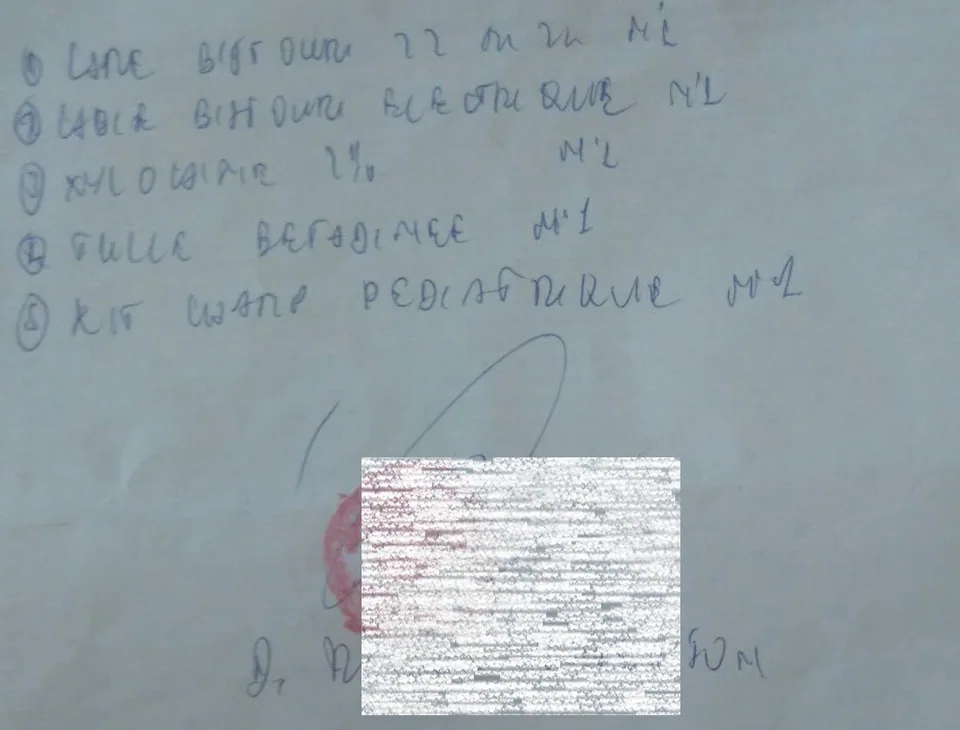 ① LAME BISTOURI 22 OU 24 N°1
② CABLE BISTOURI ELECTRIQUE N°1
③ XYLOCAINE 2% N°1
④ TULLE BETADINEE N°1
⑤ KIT CHAMP PEDIATRIQUE N°1
Dr